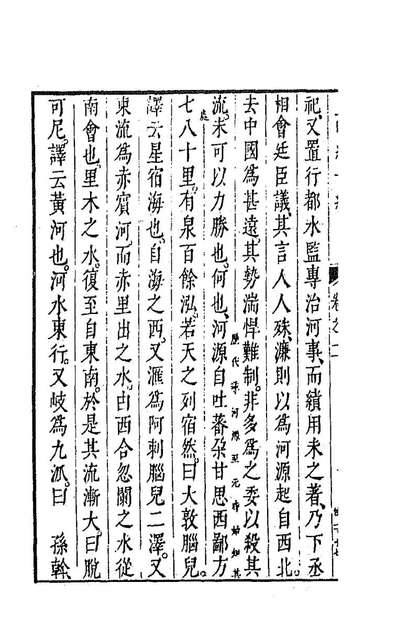 卷之二
祀又置行都水監專治河事而績用未之著乃下丞
相會廷臣議其言人人殊濂則以為河源起自西北
去中國為甚遠其勢湍悍難制非多為之委以殺其
流未可以力勝也何也河源自吐蕃朵甘思西鄙方
七八十里有泉百餘泓若天之列宿然曰火敦腦兒
譯云星宿海也自海之西又滙為阿剌腦兒二澤又
東流為赤賓河而赤里出之水自西合忽闌之水從
南會也里木之水復至自東南於是其流漸大曰脫
可尼譯云黃河也河水東行又岐為九派曰孫斡